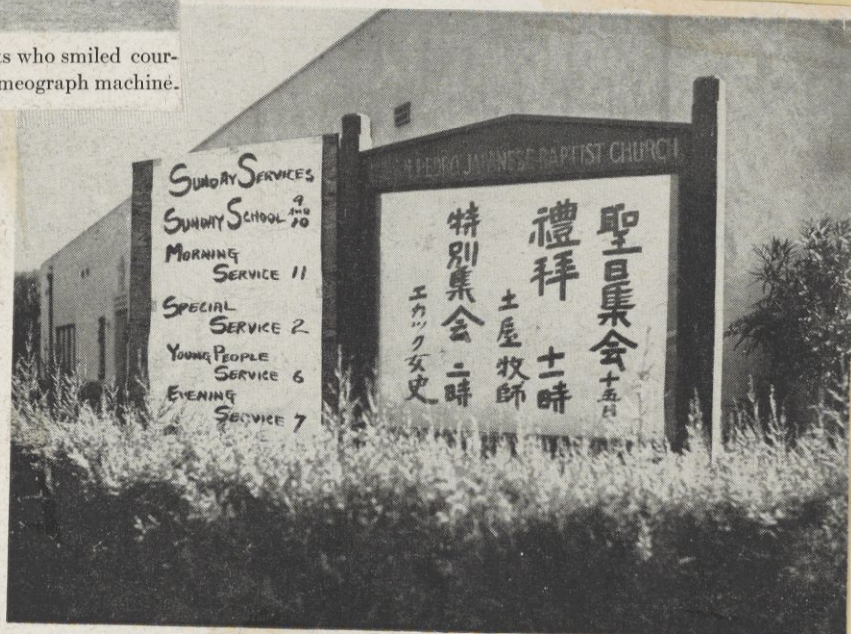 ts who smiled cour-
meograph machine.
SUNDAY SERVICES
SUNDAY SCHOOL 9 AND 10
MORNING
SERVICE 11
SPECIAL
SERVICE 2
YOUNG PEOPLE
SERVICE 6
EVENING
SERVICE 7
PEDRO JAPANESE BAPTIST CHURCH
聖日集会 十五日
禮拜 十一時
土屋牧師
特別集会 二時
エカック女史